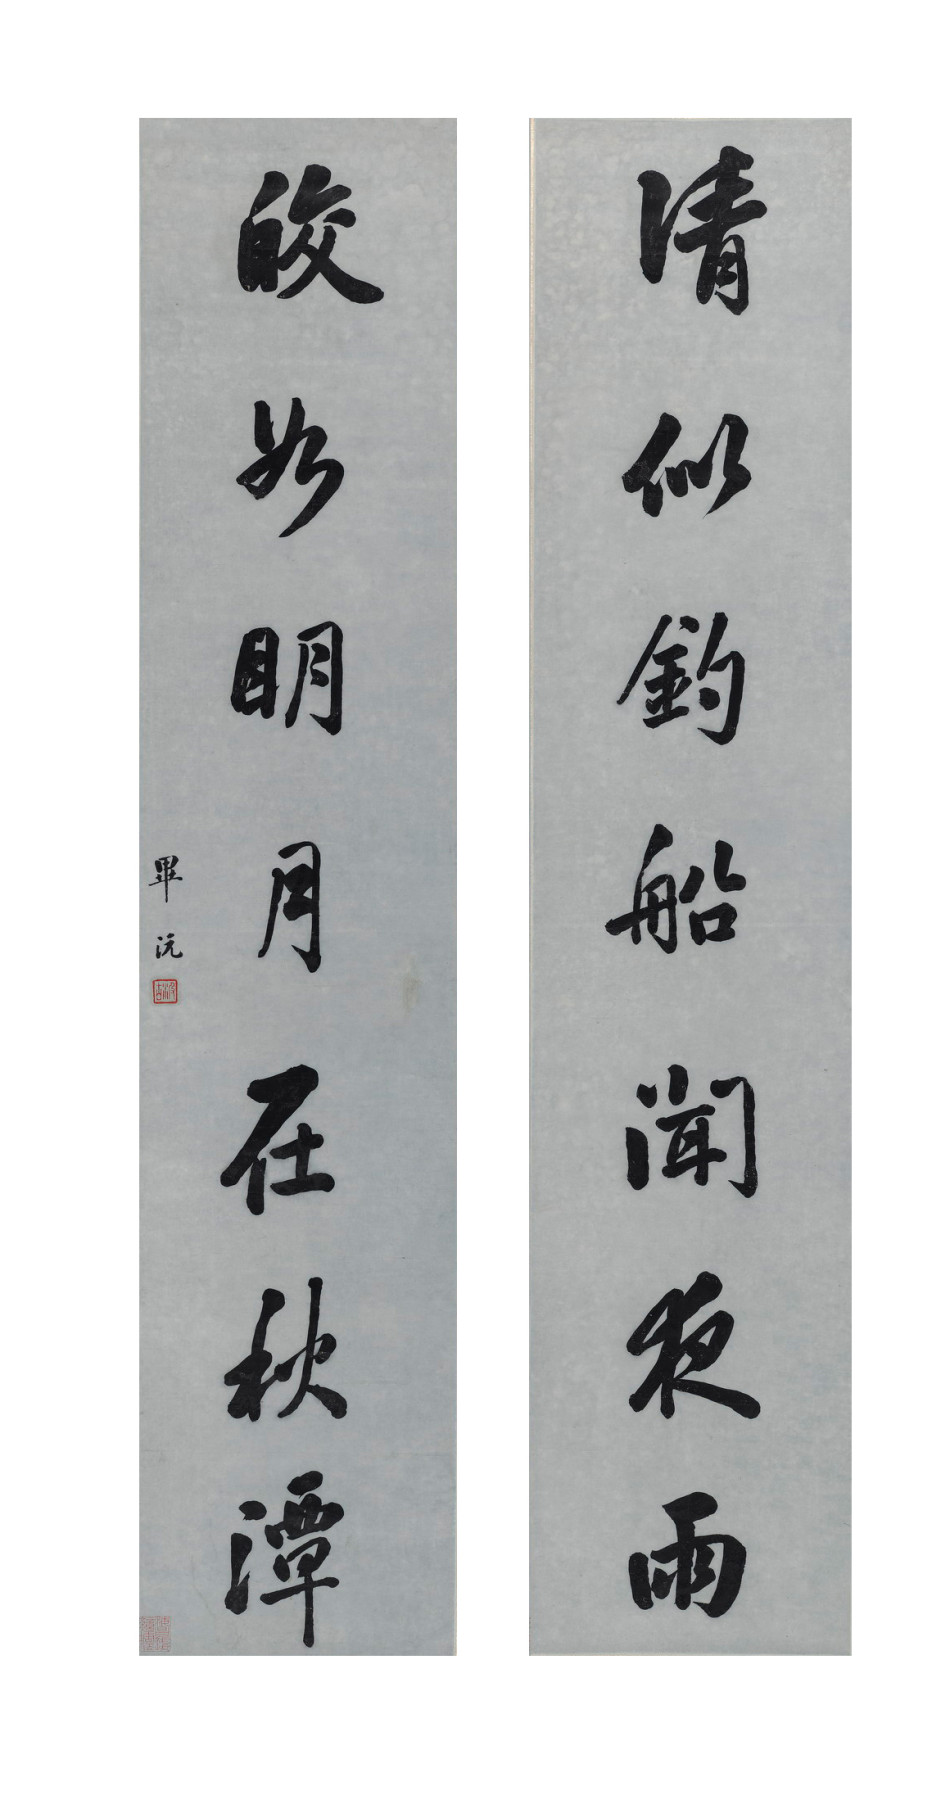 清似釣船聞夜雨
皎如明月在秋潭
畢沅